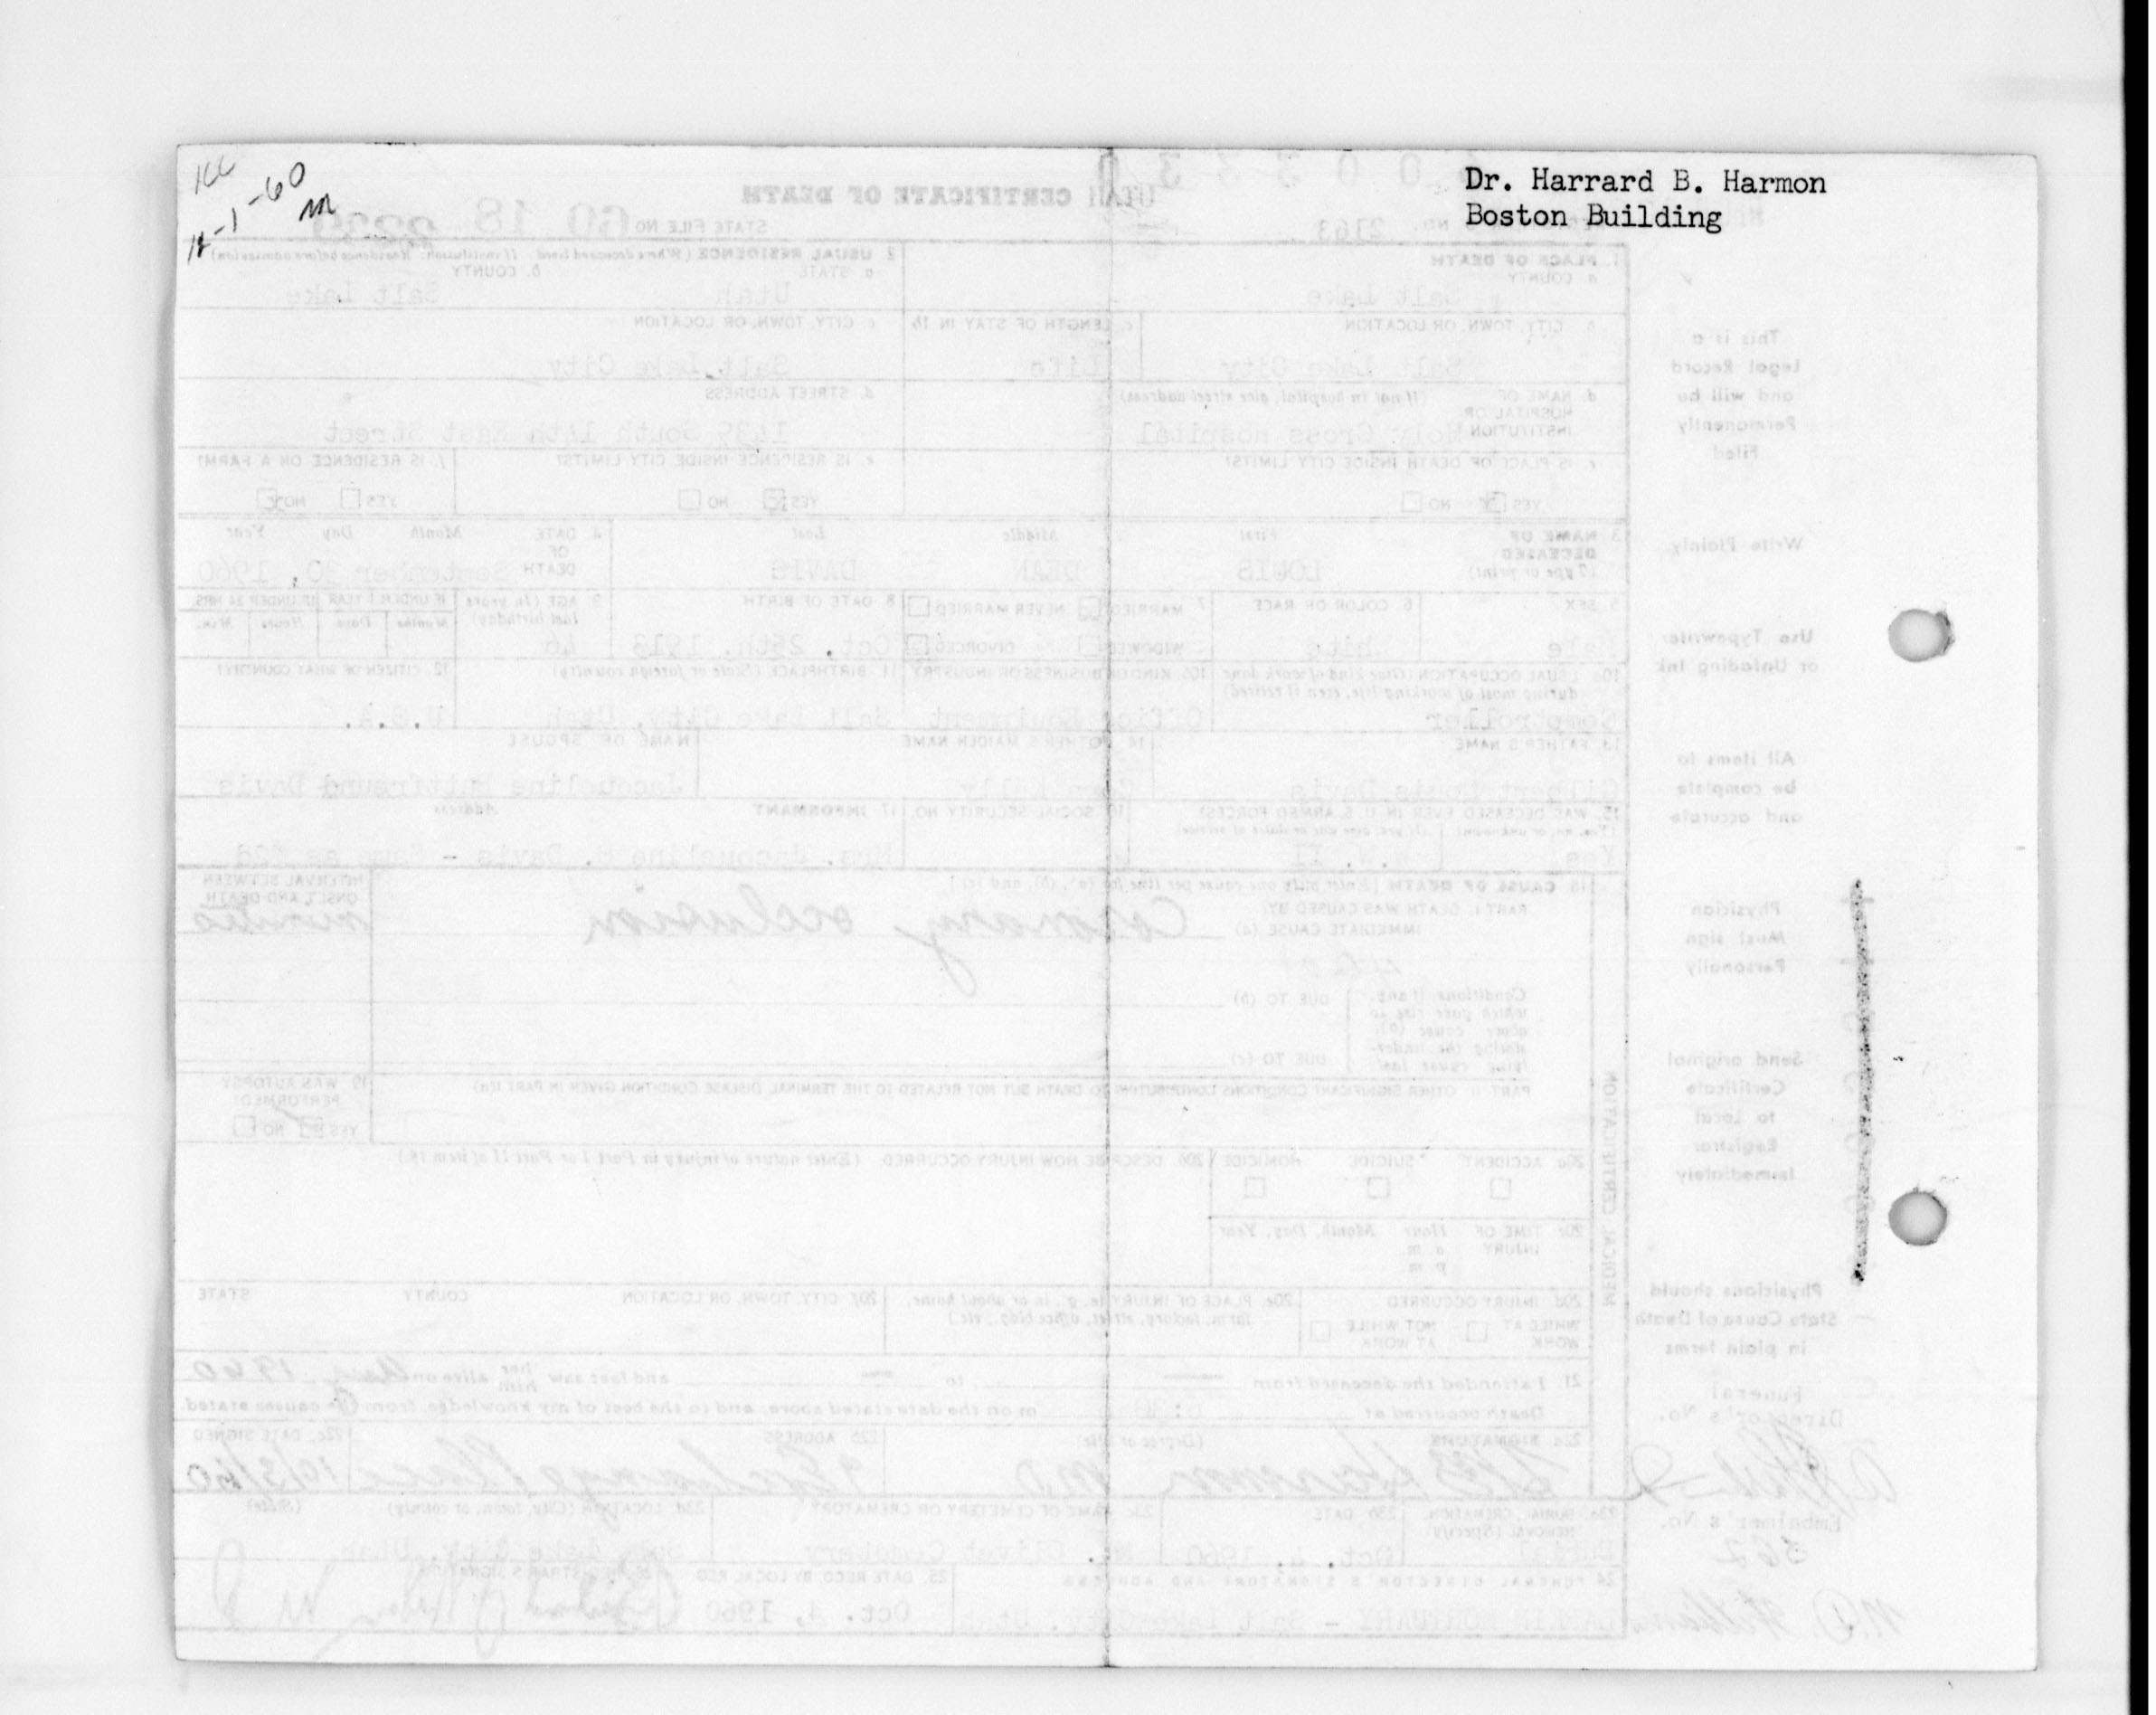 Dr. Harrard B. Harmon
Boston Building
-1-60
UTAH CERTIFICATE OF DEATH
STATE FILE NO. 60 18
2163
1. PLACE OF DEATH
a. COUNTY
Salt Lake
2. USUAL RESIDENCE (Where deceased lived. If institution: Residence before admission)
a. STATE
Utah
b. COUNTY
Salt Lake
b. CITY, TOWN, OR LOCATION
Salt Lake City
c. LENGTH OF STAY IN 1b
Life
c. CITY, TOWN, OR LOCATION
Salt Lake City
d. NAME OF HOSPITAL OR INSTITUTION
(If not in hospital, give street address)
Holy Cross Hospital
d. STREET ADDRESS
1439 South 14th East Street
e. IS PLACE OF DEATH INSIDE CITY LIMITS?
YES NO
e. IS RESIDENCE INSIDE CITY LIMITS?
YES NO
f. IS RESIDENCE ON A FARM?
YES NO
3. NAME OF DECEASED
(Type or print)
First Middle Last
LOUIS DEAN DAVIS
4. DATE OF DEATH
Month Day Year
September 30, 1960
5. SEX
Male
6. COLOR OR RACE
White
7. MARRIED NEVER MARRIED
WIDOWED DIVORCED
8. DATE OF BIRTH
Oct. 25th, 1913
9. AGE (In years last birthday)
46
IF UNDER 1 YEAR IF UNDER 24 HRS.
Months Days Hours Min.
10a. USUAL OCCUPATION (Give kind of work done during most of working life, even if retired)
Comptroller
10b. KIND OF BUSINESS OR INDUSTRY
Office Equipment
11. BIRTHPLACE (State or foreign country)
Salt Lake City, Utah
12. CITIZEN OF WHAT COUNTRY?
U.S.A.
13. FATHER'S NAME
Gilbert Louis Davis
14. MOTHER'S MAIDEN NAME
Kelly
NAME OF SPOUSE
Jacqueline Davis
15. WAS DECEASED EVER IN U. S. ARMED FORCES?
(Yes, no, or unknown) (If yes, give war or dates of service)
Yes W.W. II
16. SOCIAL SECURITY NO.
17. INFORMANT Address
Mrs. Jacqueline B. Davis - Same as #2d
18. CAUSE OF DEATH [Enter only one cause per line for (a), (b), and (c).]
PART I. DEATH WAS CAUSED BY:
IMMEDIATE CAUSE (a) Coronary occlusion
INTERVAL BETWEEN ONSET AND DEATH
minutes
Conditions, if any, which gave rise to above cause (a), stating the underlying cause last.
DUE TO (b)
DUE TO (c)
PART II. OTHER SIGNIFICANT CONDITIONS CONTRIBUTING TO DEATH BUT NOT RELATED TO THE TERMINAL DISEASE CONDITION GIVEN IN PART I(a)
19. WAS AUTOPSY PERFORMED?
YES NO
20a. ACCIDENT SUICIDE HOMICIDE
20b. DESCRIBE HOW INJURY OCCURRED. (Enter nature of injury in Part I or Part II of item 18.)
20c. TIME OF INJURY Hour Month, Day, Year
a. m.
p. m.
20d. INJURY OCCURRED
WHILE AT WORK NOT WHILE AT WORK
20e. PLACE OF INJURY (e. g., in or about home, farm, factory, street, office bldg., etc.)
20f. CITY, TOWN, OR LOCATION COUNTY STATE
21. I attended the deceased from to and last saw her him alive on Aug 1960
Death occurred at m on the date stated above; and to the best of my knowledge, from the causes stated.
22a. SIGNATURE (Degree or title)
HB Harmon MD
22b. ADDRESS
9 Exchange Place
22c. DATE SIGNED
10/3/60
23a. BURIAL, CREMATION, REMOVAL (Specify)
Burial
23b. DATE
Oct. 4, 1960
23c. NAME OF CEMETERY OR CREMATORY
Mt. Olivet Cemetery
23d. LOCATION (City, town, or county) (State)
Salt Lake City, Utah
24. FUNERAL DIRECTOR'S SIGNATURE AND ADDRESS
LARKIN MORTUARY - Salt Lake City, Utah
25. DATE RECD BY LOCAL REG.
Oct. 4, 1960
26. REGISTRAR'S SIGNATURE
MEDICAL CERTIFICATION
This is a
Legal Record
and will be
Permanently
Filed
Write Plainly
Use Typewriter
or Unfading Ink
All items to
be complete
and accurate
Physician
Must sign
Personally
Send original
Certificate
to Local
Registrar
Immediately
Physicians should
State Cause of Death
in plain terms
Funeral
Director's No.
Embalmer's No.